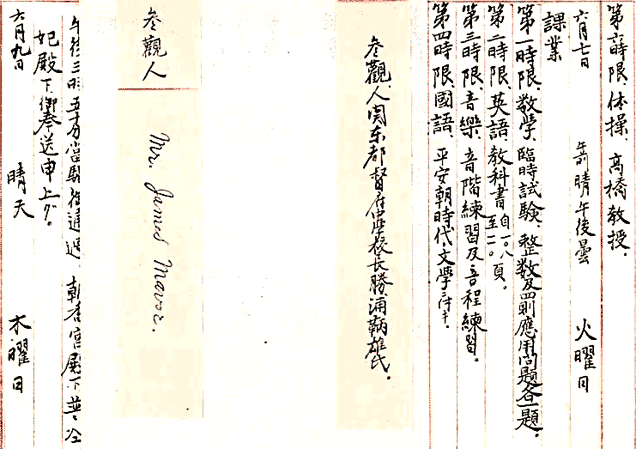 第六時限、体操、高橋教授。
六月七日 午前晴午後曇 火曜日
課業
第一時限、数学、臨時試験、整数及四則應用問題各一題。
第二時限、英語、教科書自一〇八頁至一一〇頁。
第三時限、音樂、音階練習及音程練習。
第四時限、國語、平安朝時代文學ニ付キ。
参觀人、関东都督府中学校長勝浦鞆雄氏。
参觀人
Mr. James
午後三時五十分當駅御通過、朝香宮殿下並ニ
妃殿下御奉送申上グ。
六月九日 晴天 木曜日